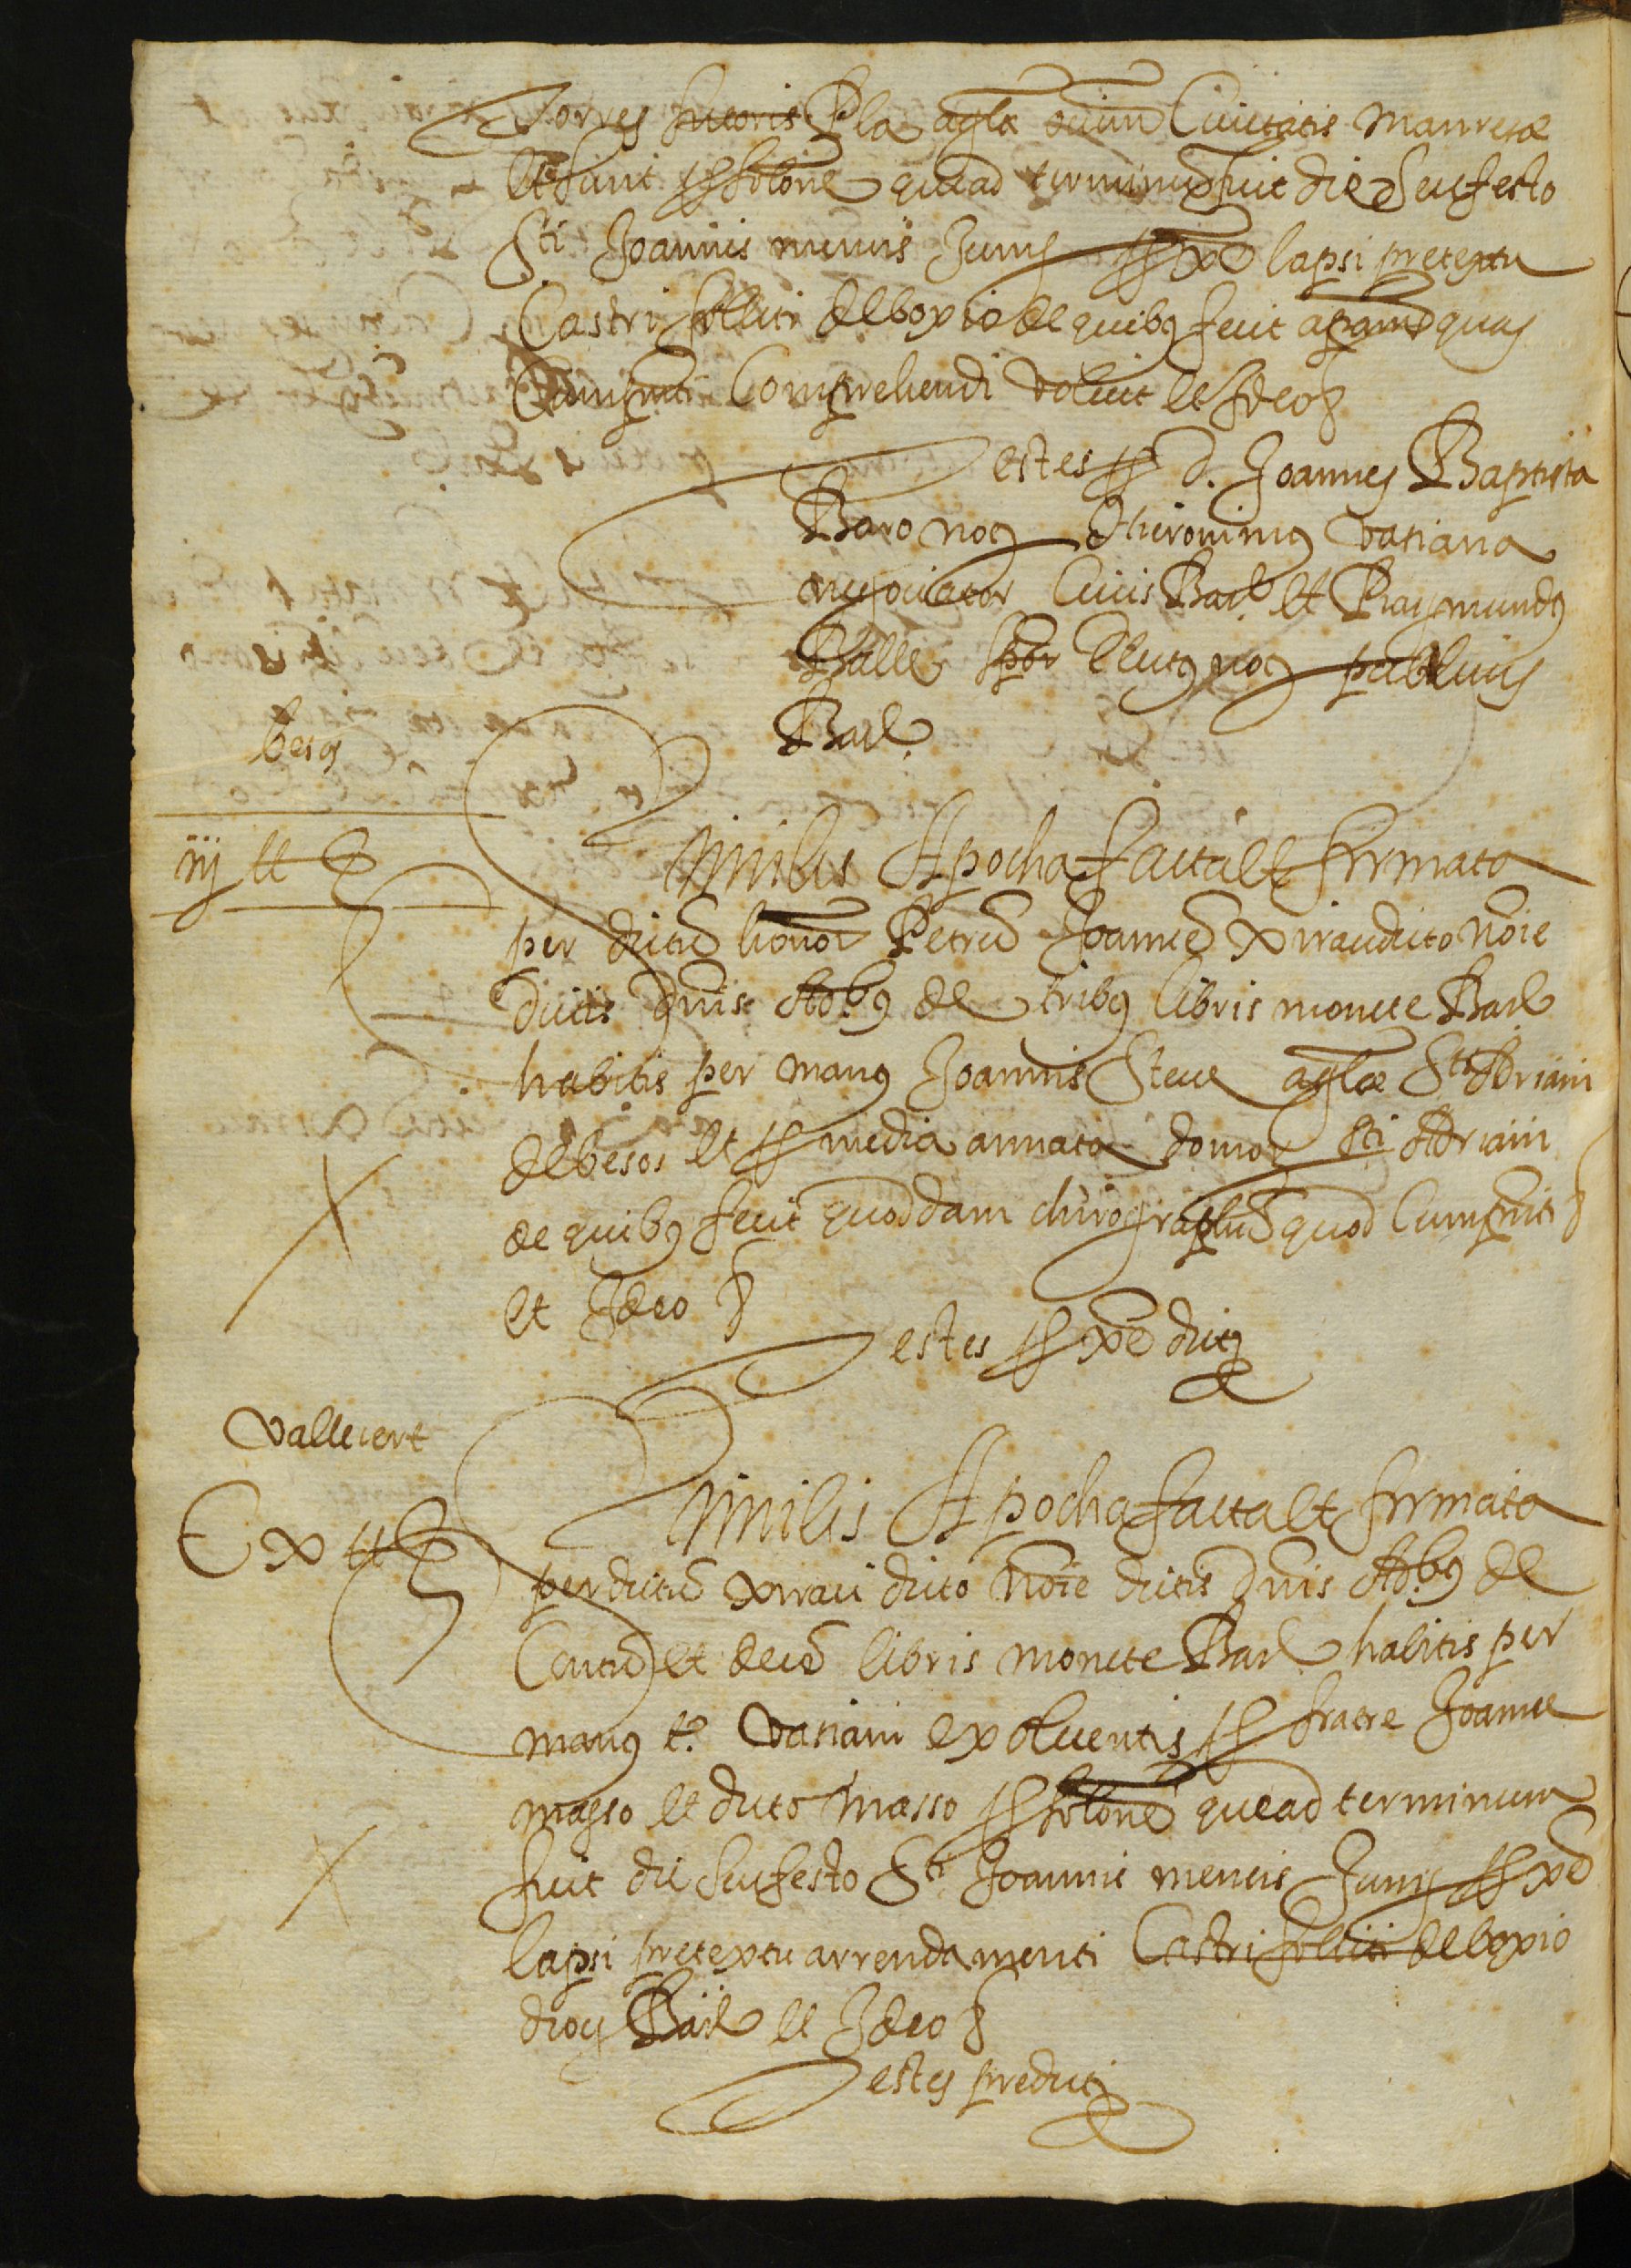 Torres sutoris Pla agl̃a omniũ Civitatis Manresæ
Et sunt ꝓ solõne que ad terminũ fuit die seu festo
Sti Joannis mensis Junij ꝓxe lapsi pretextu
Castri feliti de boxio de quibꝯ fecit apocam quas
Cum pñti Comprehendi voluit et Ideo ẞ
Testes ꝓ d. Joannes Baptista
Baro noꝯ Hieronimꝯ vatiana
negociator Civis Barẽ et Raymundꝯ
Batlle scptor Elutꝯ noꝯ publicus
Barẽ
besos
iij ℔ ẞ
Similis Apocha facta et firmata
per dictũ honor Petrũ Joannẽ Xirau dicto nõie
dictis dñis Adbꝯ de tribꝯ libris monete Barẽ
habitis per manꝯ Joannis Steve aglæ Sti Adriani
de besos et ꝓ media annata domoꝝ sti Adriani
de quibꝯ fecit quoddam chirographũ quod Cum pñti ẞ
et Ideo ẞ
Testes ꝓxe dicti
Vallcert
Cx ℔ ẞ
Similis Apocha facta et firmata
per dictũ Xirau dicto nõie dictis dñis Adbꝯ de
Centũ et decẽ libris monete Barẽ habitis per
manꝯ tº Vatiani exolventis ꝓ fratre Joanne
masso et dicto Masso ꝓ solõne que ad terminum
fuit die seu festo Sti Joannis mensis Junij ꝓxe
lapsi pretextu arrendamenti Castri feliti de boxio
diocꝯ Barẽ et Ideo ẞ
Testes predicti